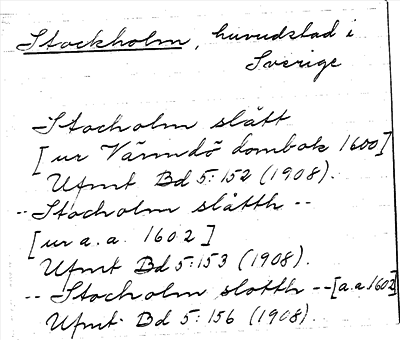 Stockholm, huvudstad i
Sverige
Stocholm slått
[ur Värmdö dombok 1600]
Ufmt Bd 5:152 (1908).
-- Stocholm slåtth --
[ur a.a. 1602]
Ufmt Bd 5:153 (1908).
-- Stocholm slotth -- [a.a. 1602]
Ufmt. Bd 5:156 (1908).